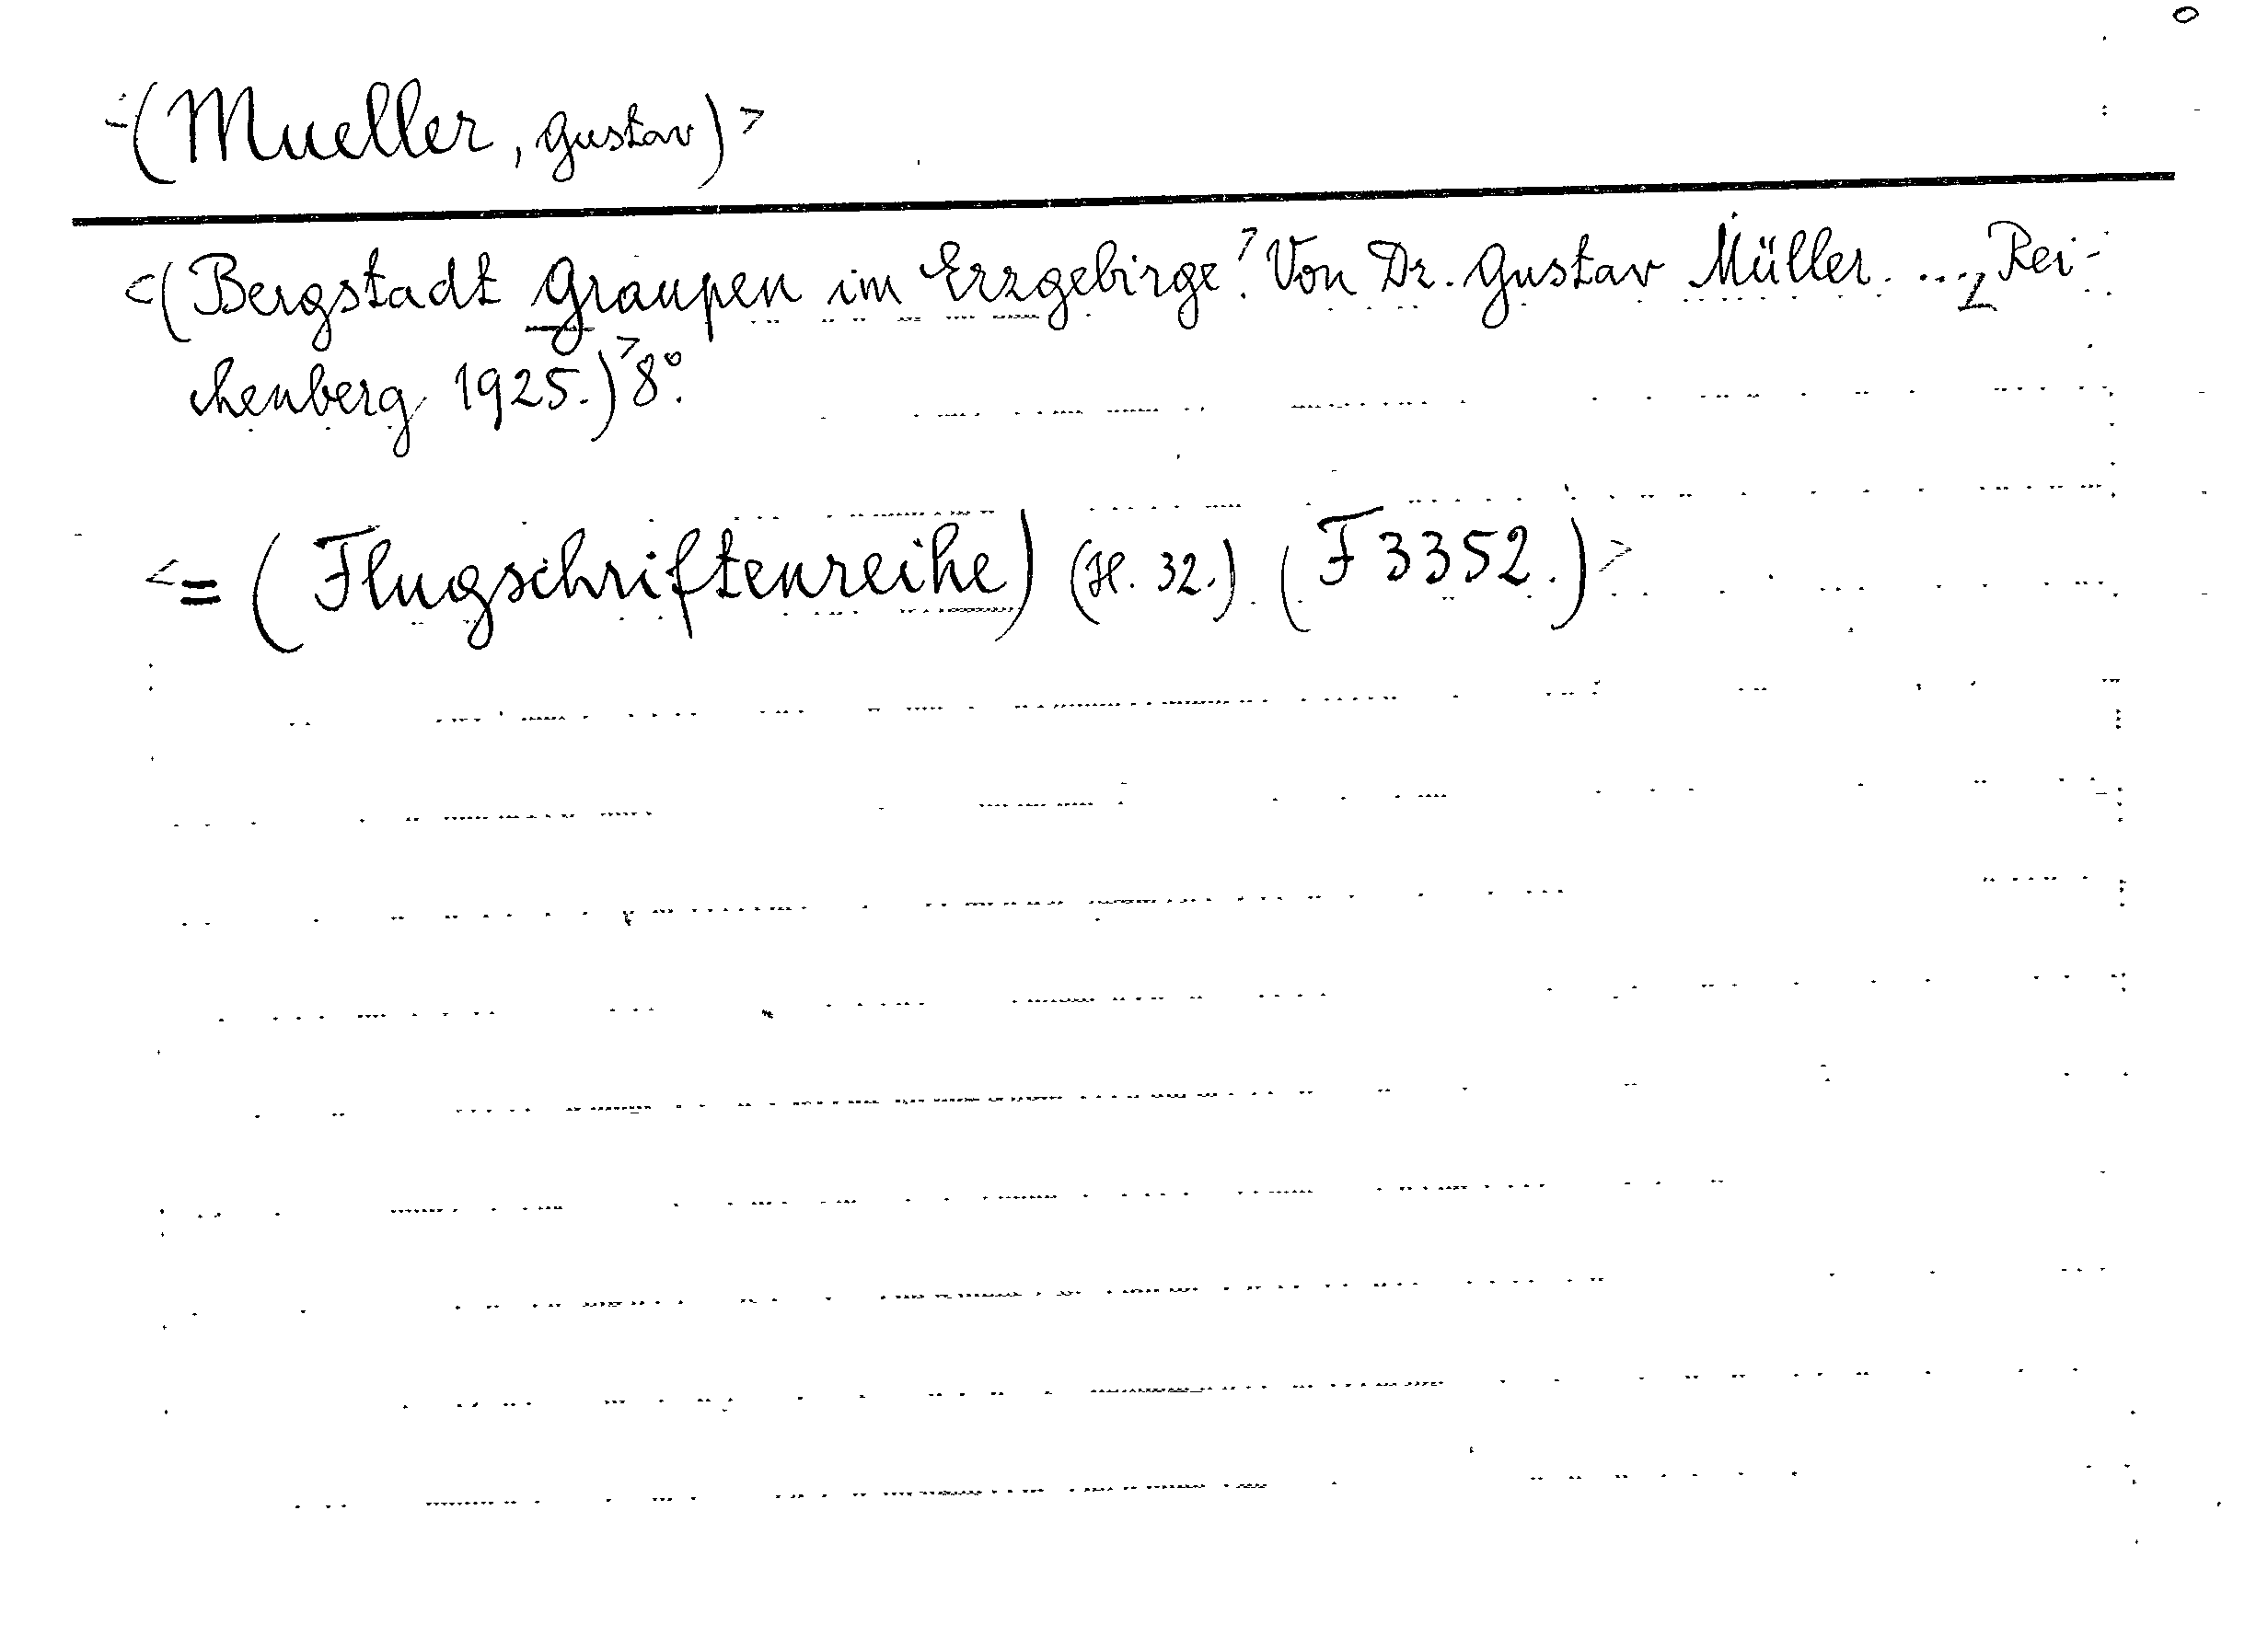 <(Mueller, Gustav)>
<(Bergstadt Graupen im Erzgebirge.> Von Dr. Gustav Müller. ...< Rei-
chenberg 1925.)> 8°.
<=(Flugschriftenreihe) (H. 32.) (F 3352.)>